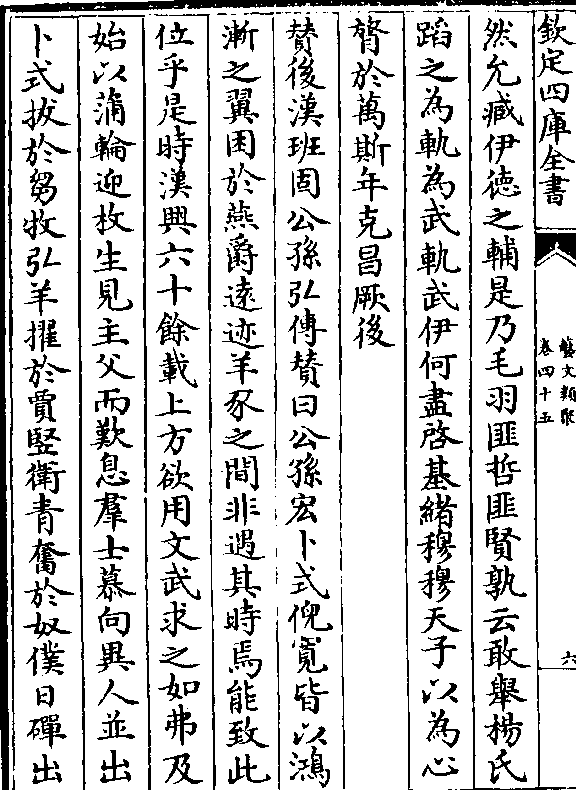 欽定四庫全書
藝文類聚
卷四十五
六
然允臧伊徳之輔是乃毛羽匪哲匪賢孰云敢舉楊氏
蹈之為軌為武軌武伊何盡啓基緒穆穆天子以為心
膂於萬斯年克昌厥後
賛後漢班固公孫弘傳賛曰公孫宏卜式倪寛皆以鴻
漸之翼困於燕爵遠迹羊豕之間非遇其時焉能致此
位乎是時漢興六十餘載上方欲用文武求之如弗及
始以蒲輪迎枚生見主父而歎息羣士慕向異人並出
卜式拔於芻牧弘羊擢於賈豎衛青奮於奴僕日磾出